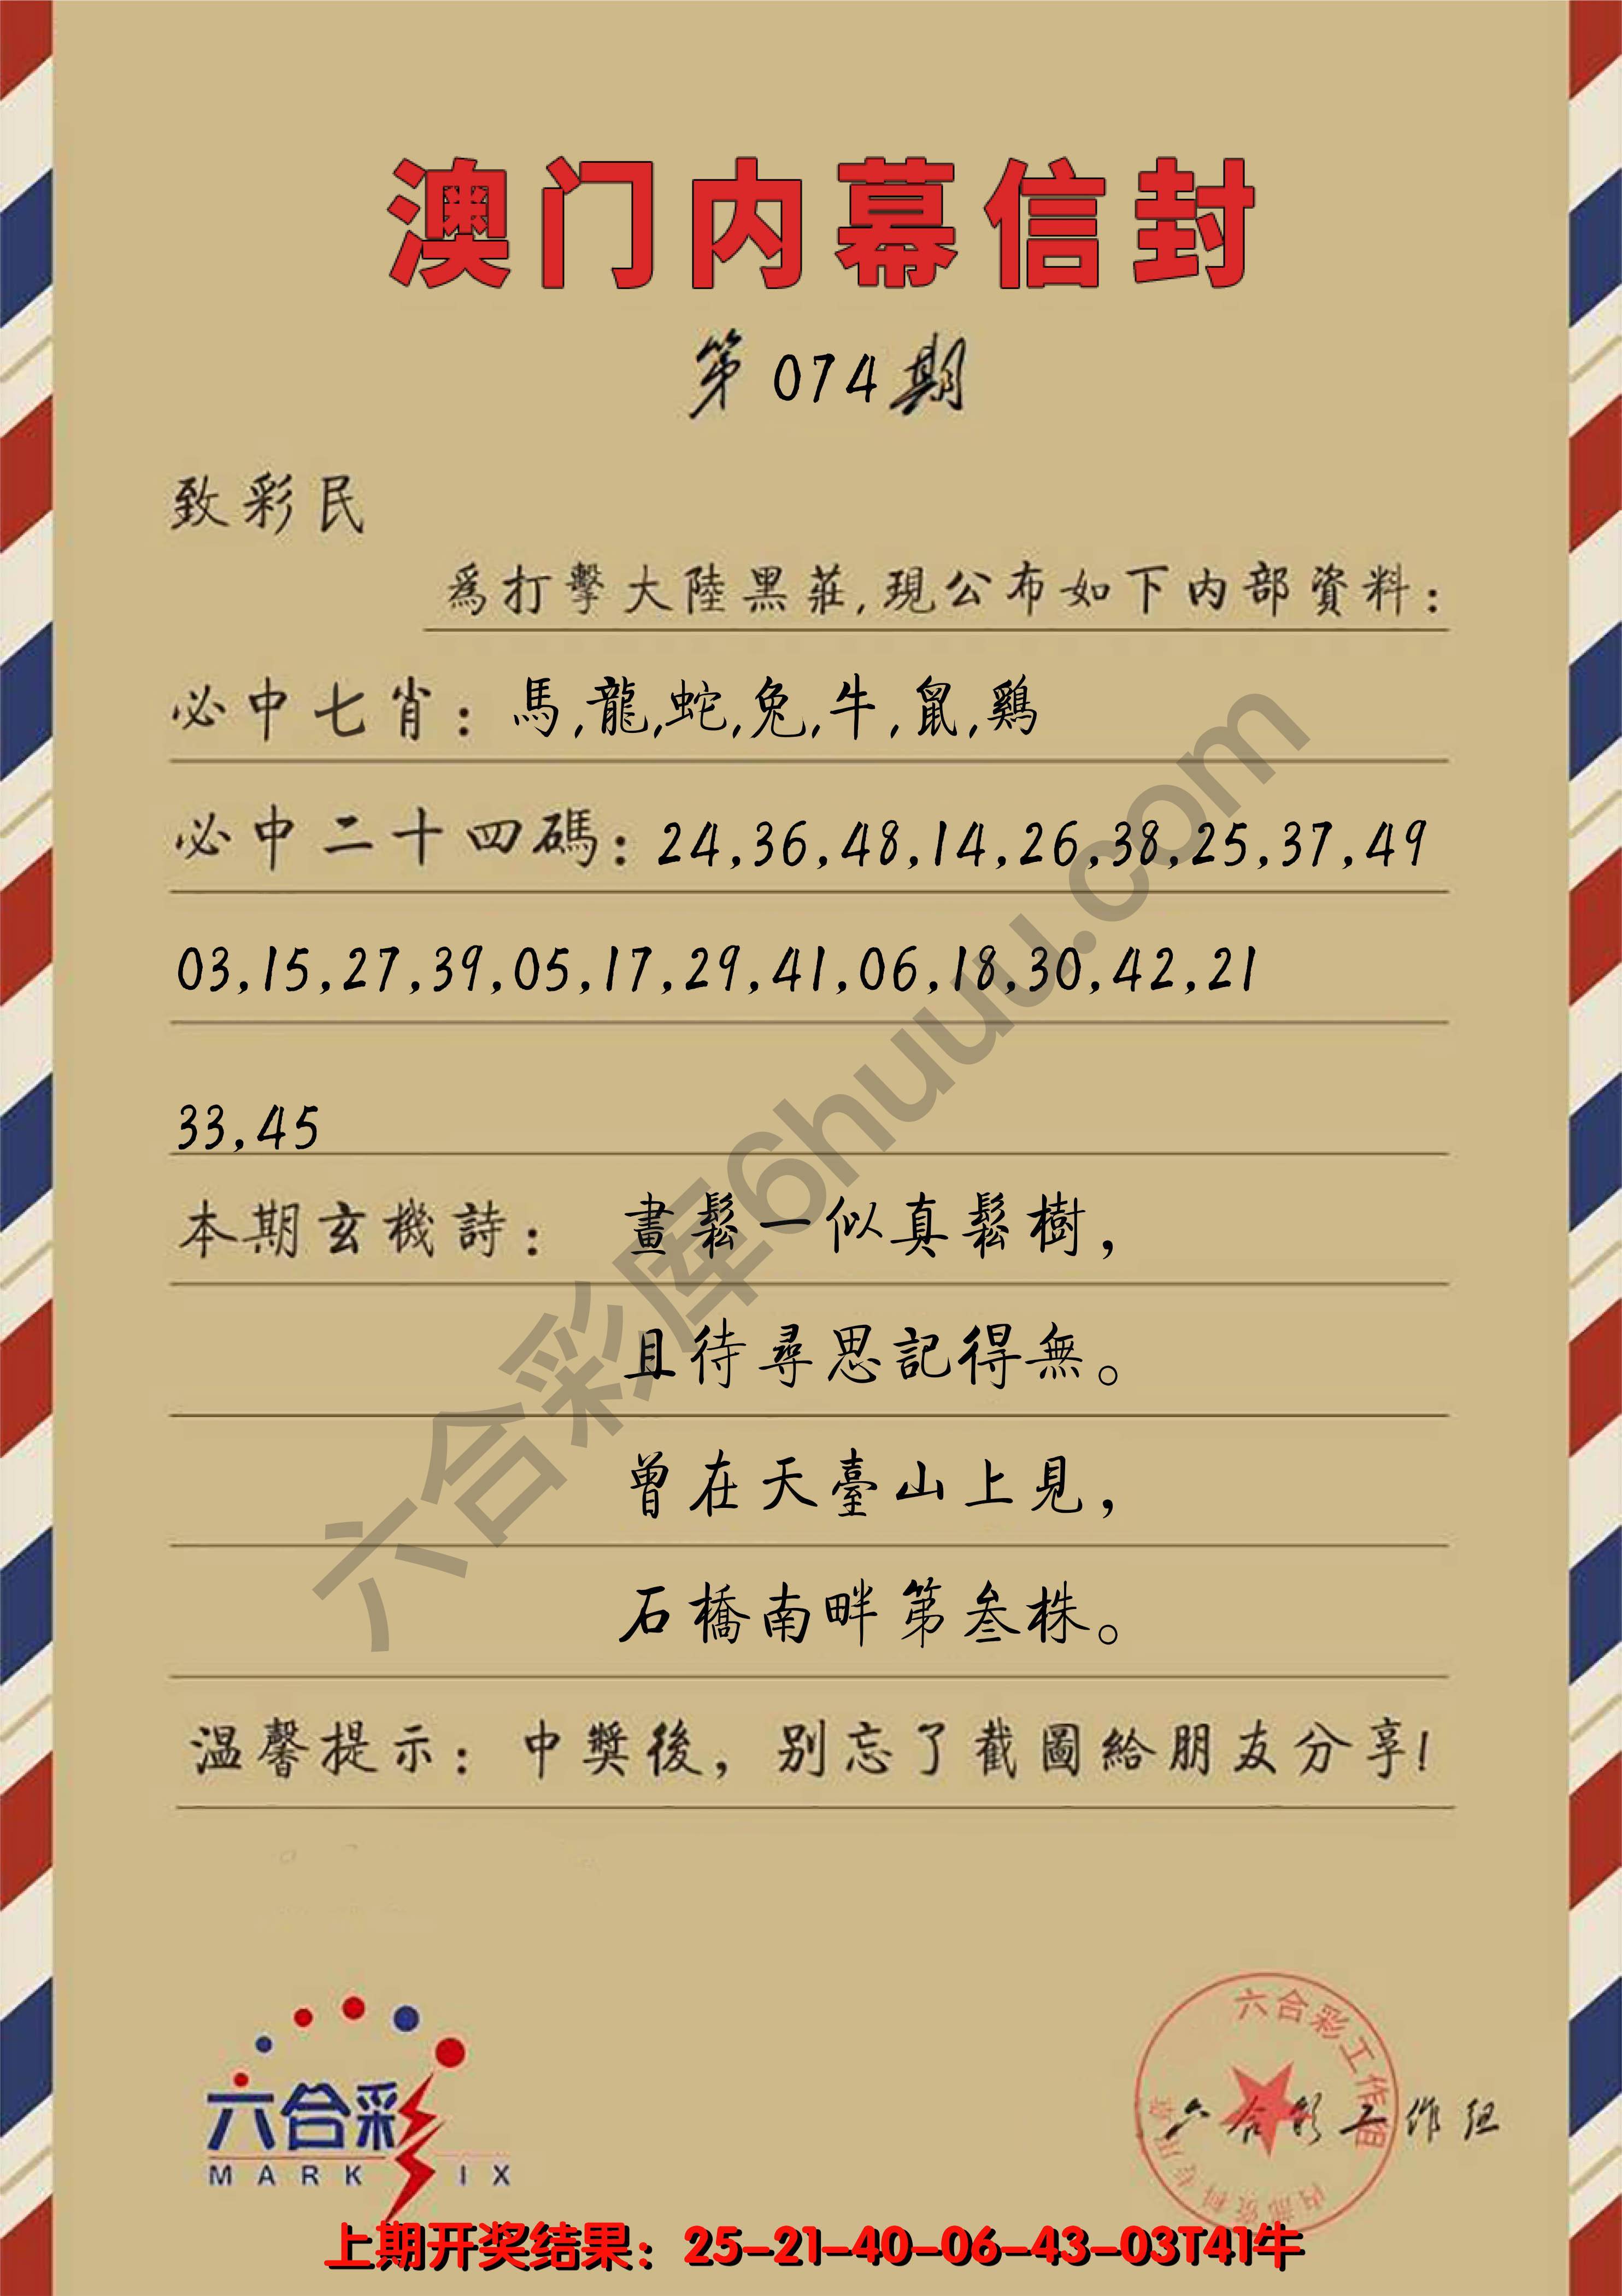 澳门内幕信封
第074期
致彩民
爲打擊大陸黑莊,現公布如下内部資料:
必中七肖: 馬,龍,蛇,兔,牛,鼠,鷄
必中二十四碼: 24,36,48,14,26,38,25,37,49
03,15,27,39,05,17,29,41,06,18,30,42,21
33,45
本期玄機詩: 畫鬆一似真鬆樹,
且待尋思記得無。
曾在天臺山上見,
石橋南畔第叁株。
温馨提示: 中獎後, 别忘了截圖給朋友分享!
六合彩库6huuu.com
六合彩
MARK IX
六合彩工作组
内部资料专用章
六合彩工作组
上期开奖结果: 25-21-40-06-43-03T41牛